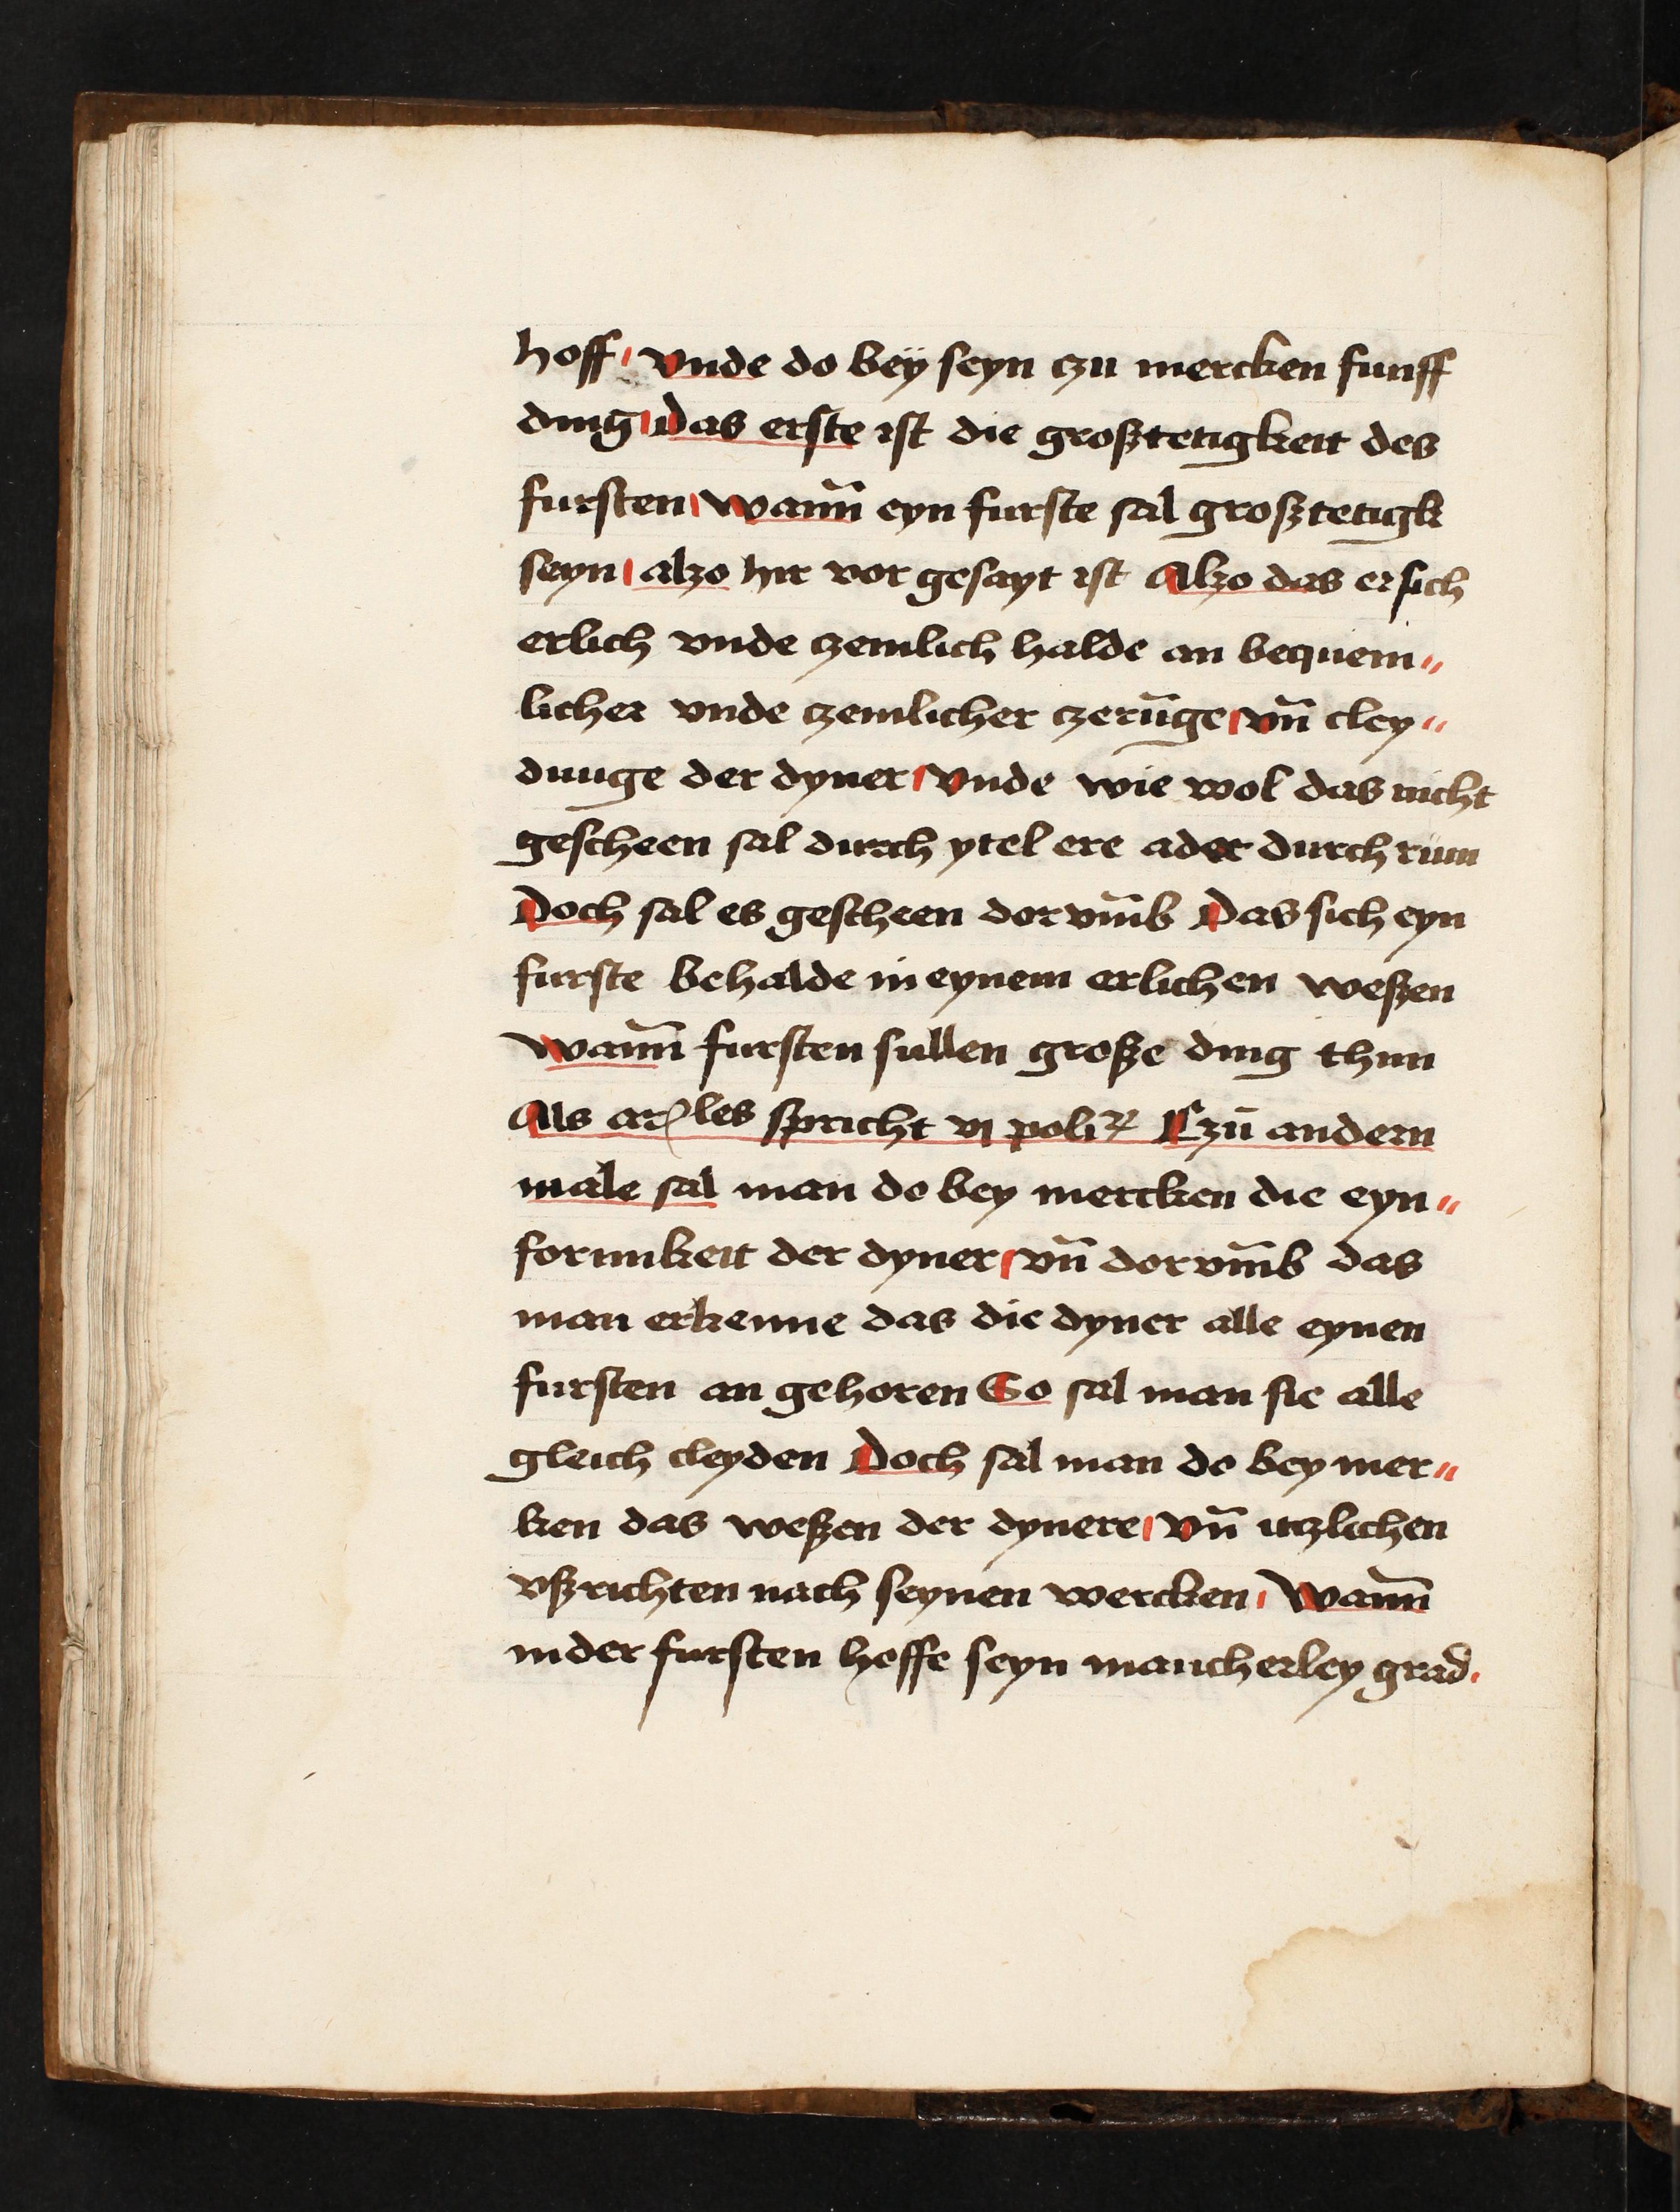 hoff / vnde do beÿ seyn czu mercken funff
ding / das erste ist die großtetigkeit des
fursten / wann̄ eyn furste sal großtetigk
seyn / alzo hir vor gesayt ist Alzo das er sich
erlich vnde czemlich halde an bequem //
licher vnde czemlicher czerūge / vn̄ cley //
dunge der dyner / Vnde wie wol das nicht
gescheen sal durch ytel ere ader durch rum
Doch sal es gescheen dor vm̄b Das sich eyn
furste behalde in eynem erlichen weßen
wann̄ fursten sullen große ding thun
Als ar̄les spricht vj poli^ꝝ Czū andern
male sal man do bey mercken die eyn //
formkeit der dyner / vn̄ dor vm̄b das
man erkenne das die dyner alle eynen
fursten an gehoren So sal man sie alle
gleich cleyden Doch sal man do bey mer //
ken das weßen der dynere / vn̄ itzlichen
vßrichten nach seynen wercken / Wann̄
in der fursten hoffe seyn mancherley grad.